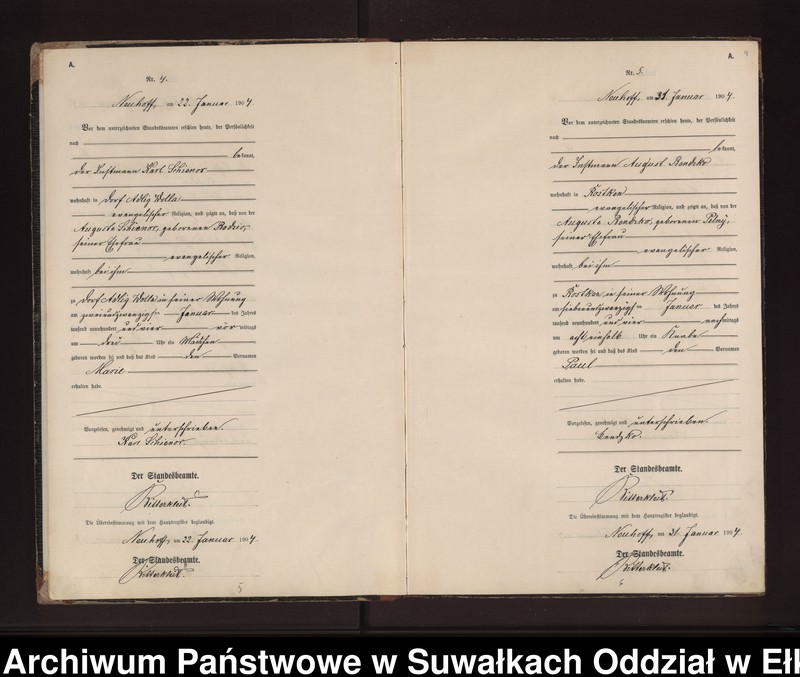 A.
Nr. 4.
Neuhoff, am 22. Januar 1904.
Vor dem unterzeichneten Standesbeamten erschien heute, der Persönlichkeit
nach
bekannt,
der Instmann Karl Schienor
wohnhaft in Dorf Adlig Wolla
evangelischer Religion, und zeigte an, daß von der
Auguste Schienor, geborenen
seiner Ehefrau
evangelischer Religion,
wohnhaft bei ihm
zu Dorf Adlig Wolla in seiner Wohnung
am zweiundzwanzigsten Januar des Jahres
tausend neunhundert und vier vor mittags
um drei Uhr ein Mädchen
geboren worden sei und daß das Kind den Vornamen
Marie
erhalten habe.
Vorgelesen, genehmigt und unterschrieben.
Karl Schienor.
Der Standesbeamte.
Die Übereinstimmung mit dem Hauptregister beglaubigt.
Neuhoff, am 22. Januar 1904.
Der Standesbeamte.
5
A.
Nr. 5.
Neuhoff, am 31. Januar 1904.
Vor dem unterzeichneten Standesbeamten erschien heute, der Persönlichkeit
nach
bekannt,
der Instmann August Bendzko
wohnhaft in Kostken
evangelischer Religion, und zeigte an, daß von der
Auguste Bendzko, geborenen
seiner Ehefrau
evangelischer Religion,
wohnhaft bei ihm
zu Kostken in seiner Wohnung
am siebenundzwanzigsten Januar des Jahres
tausend neunhundert und vier nachmittags
um acht einhalb Uhr ein Knabe
geboren worden sei und daß das Kind den Vornamen
Paul
erhalten habe.
Vorgelesen, genehmigt und unterschrieben.
Bendzko.
Der Standesbeamte.
Die Übereinstimmung mit dem Hauptregister beglaubigt.
Neuhoff, am 31. Januar 1904.
Der Standesbeamte.
6
Archiwum Państwowe w Suwałkach Oddział w Ełk